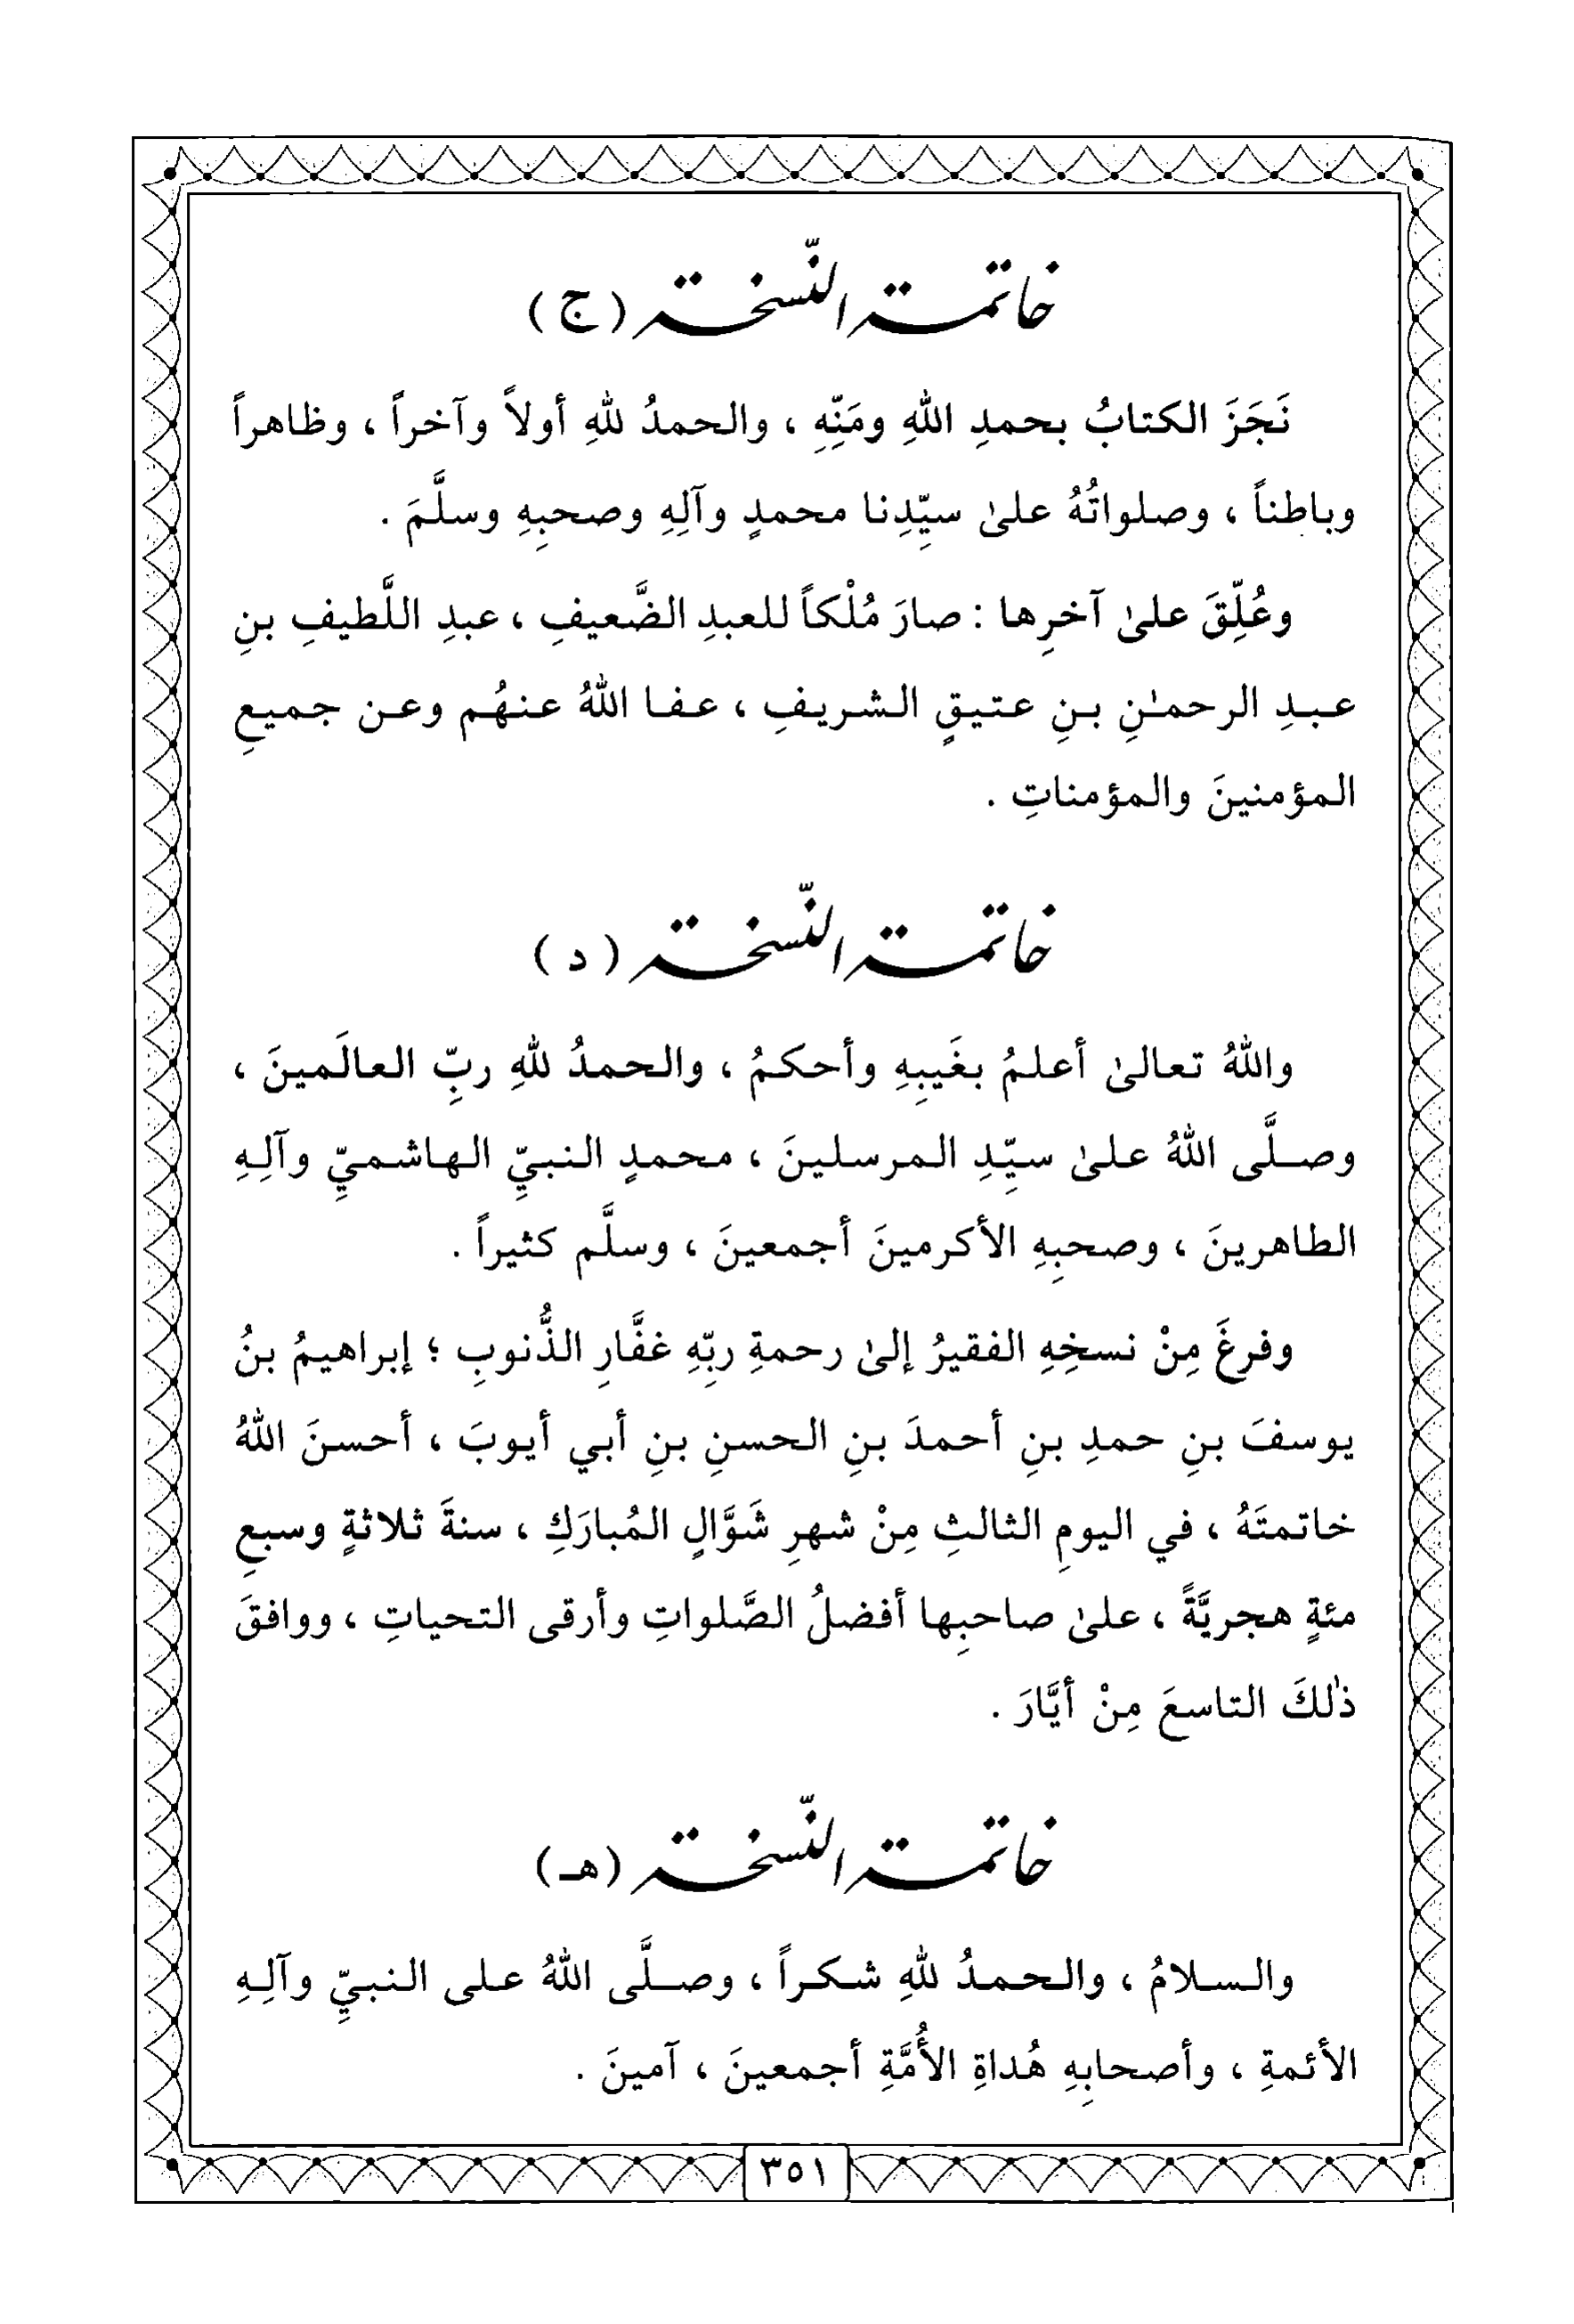 خاتمة النّسخة (ج)
نَجَزَ الكتابُ بحمدِ اللهِ ومَنِّهِ ، والحمدُ للهِ أولاً وآخراً ، وظاهراً
وباطناً ، وصلواتُهُ علىٰ سيِّدِنا محمدٍ وآلِهِ وصحبِهِ وسلَّمَ .
وعُلِّقَ علىٰ آخرِها : صارَ مُلْكاً للعبدِ الضَّعيفِ ، عبدِ اللَّطيفِ بنِ
عبدِ الرحمـٰنِ بنِ عتيقٍ الشريفِ ، عفا اللهُ عنهُم وعن جميعِ
المؤمنينَ والمؤمناتِ .
خاتمة النّسخة (د)
واللهُ تعالىٰ أعلمُ بغَيبِهِ وأحكمُ ، والحمدُ للهِ ربِّ العالَمينَ ،
وصلَّى اللهُ علىٰ سيِّدِ المرسلينَ ، محمدٍ النبيِّ الهاشميِّ وآلِهِ
الطاهرينَ ، وصحبِهِ الأكرمينَ أجمعينَ ، وسلَّم كثيراً .
وفرغَ مِنْ نسخِهِ الفقيرُ إلىٰ رحمةِ ربِّهِ غفَّارِ الذُّنوبِ ؛ إبراهيمُ بنُ
يوسفَ بنِ حمدِ بنِ أحمدَ بنِ الحسنِ بنِ أبي أيوبَ ، أحسنَ اللهُ
خاتمتَهُ ، في اليومِ الثالثِ مِنْ شهرِ شَوَّالٍ المُبارَكِ ، سنةَ ثلاثةٍ وسبعِ
مئةٍ هجريَّةً ، علىٰ صاحبِها أفضلُ الصَّلواتِ وأرقى التحياتِ ، ووافقَ
ذٰلكَ التاسعَ مِنْ أيَّارَ .
خاتمة النّسخة (هـ)
والسلامُ ، والحمدُ للهِ شكراً ، وصلَّى اللهُ على النبيِّ وآلِهِ
الأئمةِ ، وأصحابِهِ هُداةِ الأُمَّةِ أجمعينَ ، آمينَ .
٣٥١